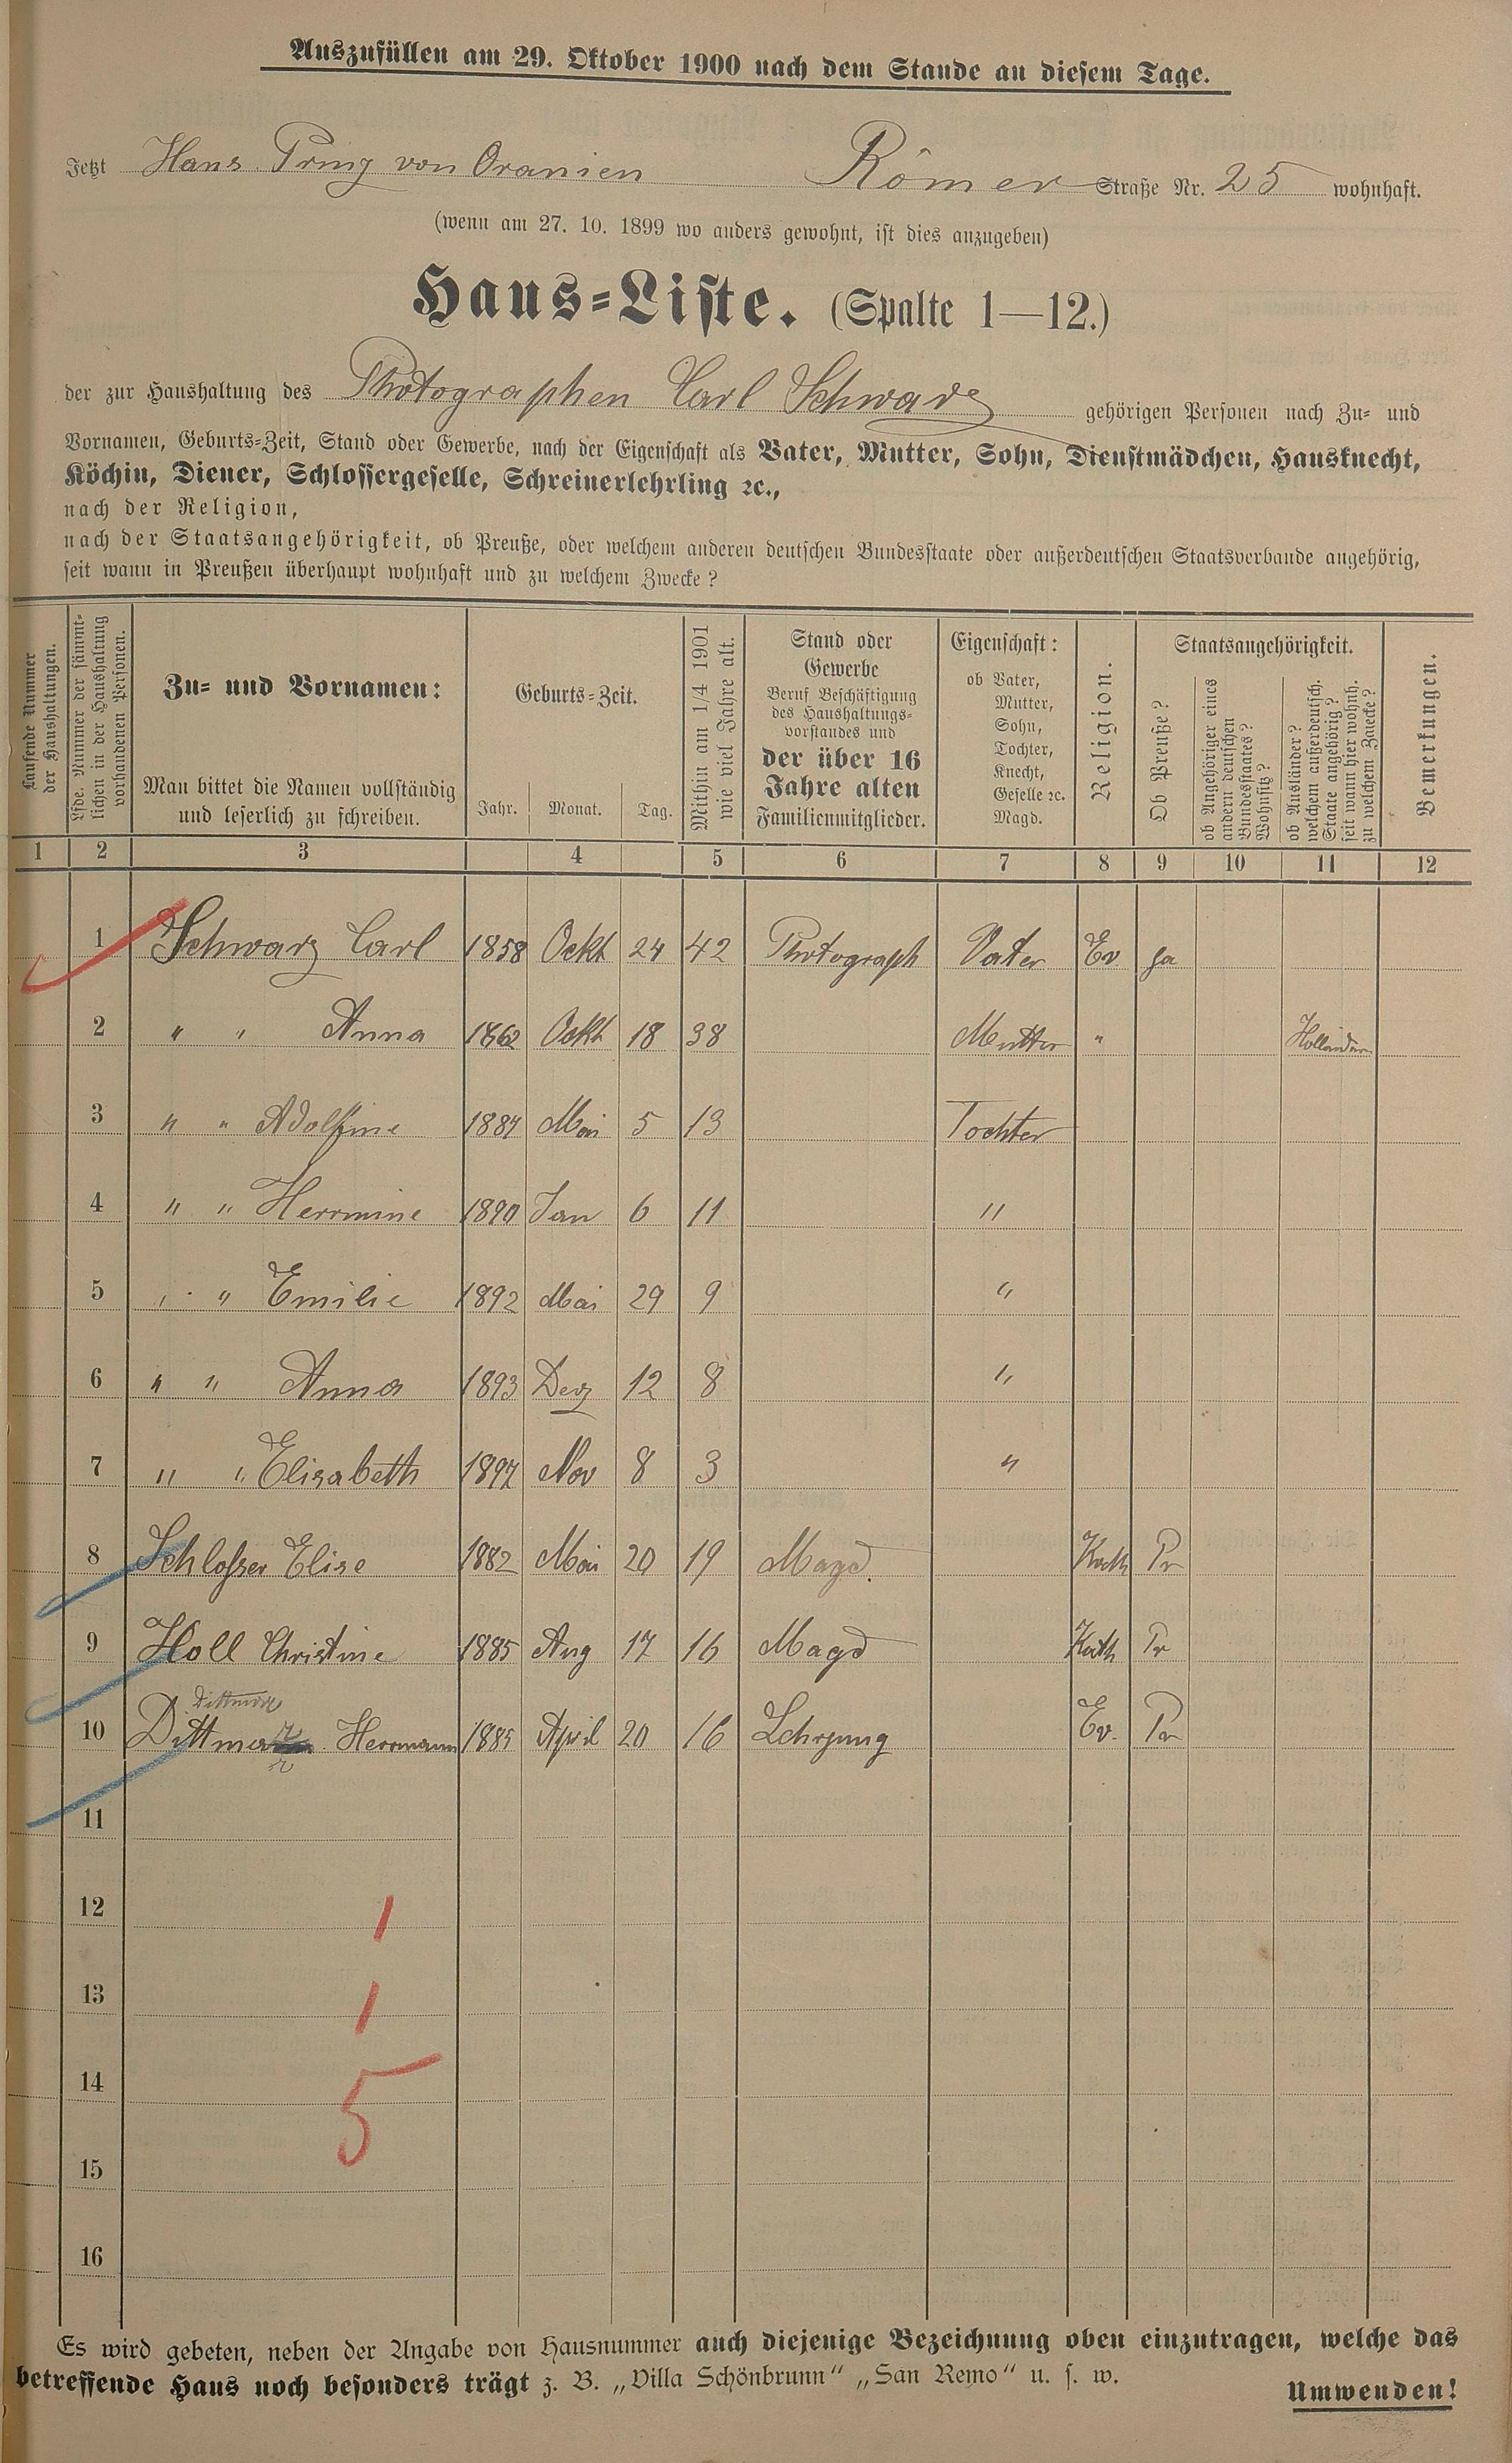 Auszufüllen am 29. Oktober 1900 nach dem Stande an diesem Tage.
Jetzt Haus Prinz von Oranien Römer Straße Nr. 25 wohnhaft.
(wenn am 27. 10. 1899 wo anders gewohnt, ist dies anzugeben)
Haus-Liste. (Spalte 1—12.)
der zur Haushaltung des Photographen Carl Schwarz gehörigen Personen nach Zu- und
Vornamen, Geburts-Zeit, Stand oder Gewerbe, nach der Eigenschaft als Vater, Mutter, Sohn, Dienstmädchen, Hausknecht,
Köchin, Diener, Schlossergeselle, Schreinerlehrling ꝛc.,
nach der Religion,
nach der Staatsangehörigkeit, ob Preuße, oder welchem anderen deutschen Bundesstaate oder außerdeutschen Staatsverbande angehörig,
seit wann in Preußen überhaupt wohnhaft und zu welchem Zwecke?
Laufende Nummer
der Haushaltungen.
Lfde. Nummer der sämmt-
lichen in der Haushaltung
vorhandenen Personen.
Zu- und Vornamen:
Man bittet die Namen vollständig
und leserlich zu schreiben.
Geburts-Zeit.
Jahr. Monat. Tag.
Mithin am 1/4 1901
wie viel Jahre alt.
Stand oder
Gewerbe
Beruf Beschäftigung
des Haushaltungs-
vorstandes und
der über 16
Jahre alten
Familienmitglieder.
Eigenschaft:
ob Vater,
Mutter,
Sohn,
Tochter,
Knecht,
Geselle ꝛc.
Magd.
Religion.
Staatsangehörigkeit.
Ob Preuße?
ob Angehöriger eines
andern deutschen
Bundesstaates?
Wohnsitz?
ob Ausländer?
welchem außerdeutsch.
Staate angehörig?
seit wann hier wohnh.
zu welchem Zwecke?
Bemerkungen.
1 2 3 4 5 6 7 8 9 10 11 12
1 Schwarz Carl 1858 Ockt 24 42 Photograph Vater Ev ja
2 " " Anna 1862 Ockt 18 38 Mutter "
3 " " Adolfine 1887 Mai 5 13 Tochter
4 " " Herrmine 1890 Jan 6 11 "
5 " " Emilie 1892 Mai 29 9 "
6 " " Anna 1893 Dez 12 8 "
7 " " Elisabeth 1897 Nov 8 3 "
8 Schloßer Elise 1882 Mai 20 19 Magd. Kath Pr
9 Holl Christine 1885 Aug 17 16 Magd Kath Pr
10 Herrmann 1885 April 20 16 Lehrjung Ev. Pr
11
12 1
13 1
14 5
15
16
Es wird gebeten, neben der Angabe von Hausnummer auch diejenige Bezeichnung oben einzutragen, welche das
betreffende Haus noch besonders trägt z. B. „Villa Schönbrunn“ „San Remo“ u. s. w.
Umwenden!